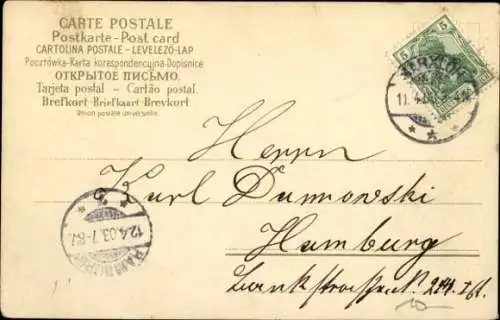 CARTE POSTALE
Postkarte - Post card
CARTOLINA POSTALE - LEVELEZŐ-LAP
Pocztówka - Karta korespondencyjna - Dopisnice
ОТКРЫТОЕ ПИСЬМО.
Tarjeta postal - Cartão postal.
Brefkort - Briefkaart - Brevkort
Union postale universelle.
5 5
11. 4.
Herrn
Karl Dumrowski
12.4.03.7-8V.
HAMBURG
Hamburg